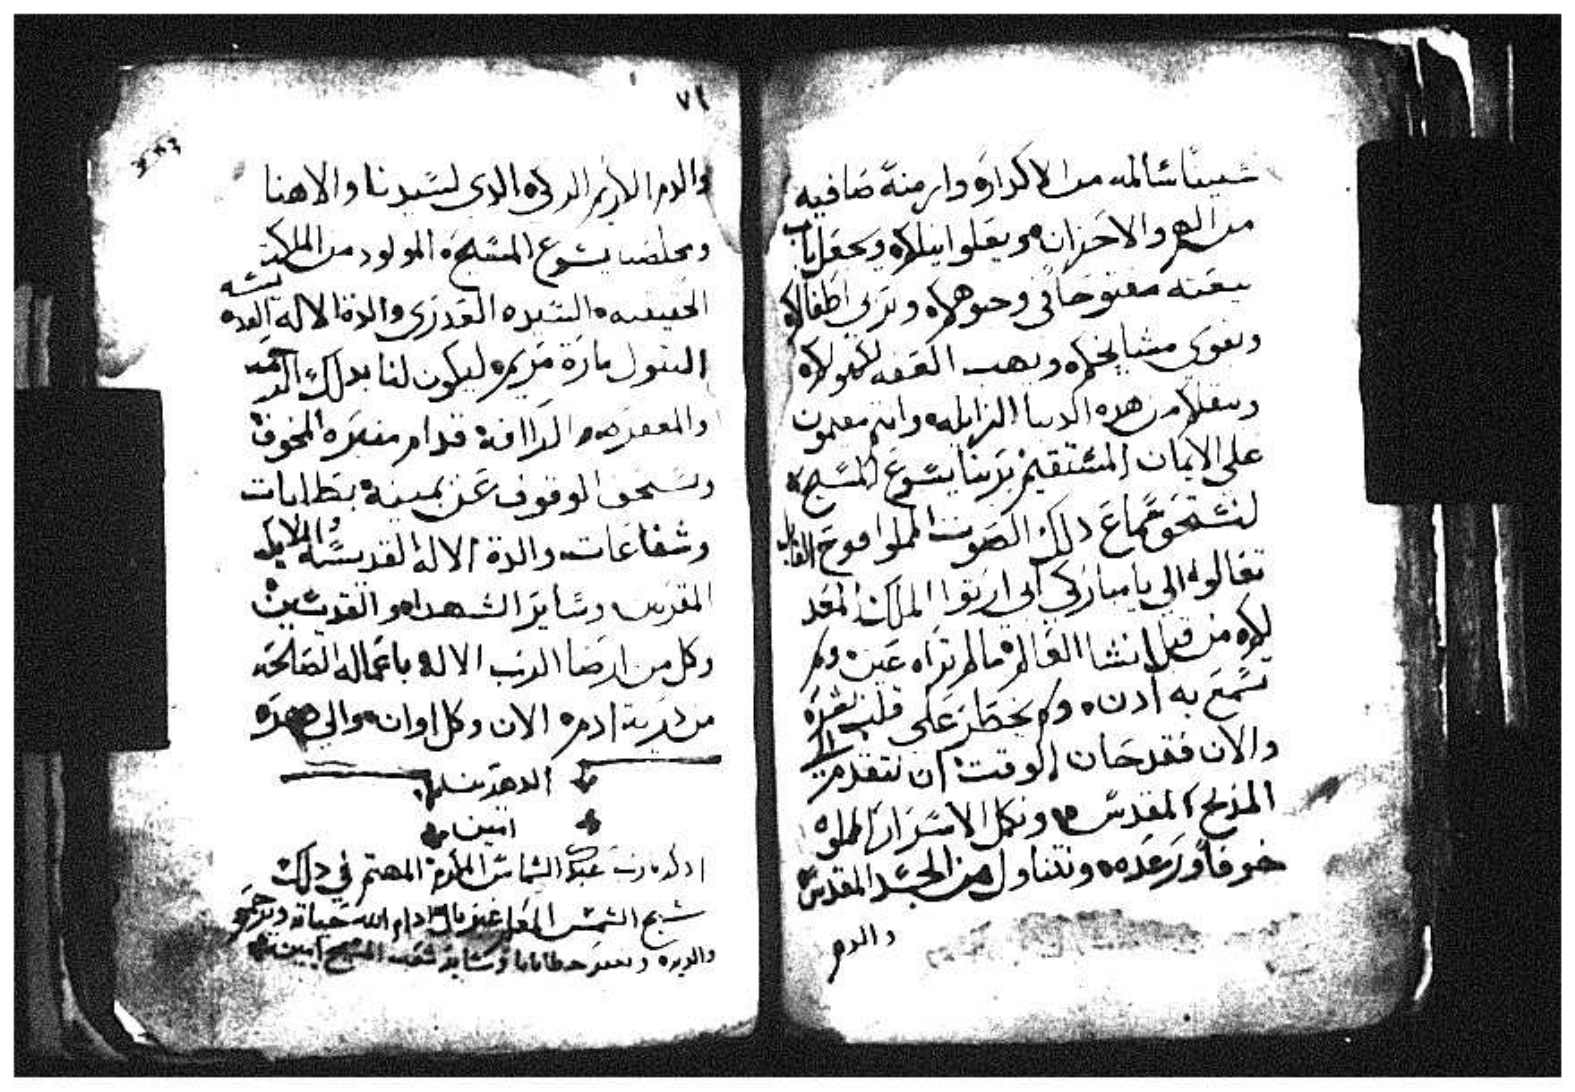 سنينًا سالمه من الاكدار وازمنة صافيه
من الهم والاحزان ويعلوا منازلكم ويجعل باب
بيعته مفتوحًا في وجوهكم ويربي اطفالكم
ويقوي مشايخكم ويهب العفه لكهولكم
وينقلكم من هذه الدنيا الزايله وانتم مقيمون
على الايمان المستقيم بربنا يسوع المسيح
لنستحق سماع دلك الصوت المملوا فرح القايل
تعالوا الي يا مباركي ابي ارتوا الملك المعد
لكم من قبل انشا العالم ما لم تراه عين ولم
تسمع به ادن ولم يخطر على قلب بشر
والان فقد حان الوقت ان نتقدم الى
المذبح المقدس ونكمل الاسرار المملوه
خوفًا ورعده ونتناول من الجسد المقدس
والدم
٧٦
والدم الكريم الزكي الذي لسيدنا والاهنا
ومخلصنا يسوع المسيح المولود من الملكه
الحقيقيه السيده العذري والدة الاله القديسه
البتول مارة مريم ليكون لنا بدلك الرحمه
والمغفره والرافة قدام منبره المخوف
ونستحق الوقوف عن يمينه بطلبات
وشفاعات والدة الاله القديسه والملايكه
المقربين وساير الشهدا والقديسين
وكل من ارضا الرب الاله باعماله الصالحه
من درية ادم الان وكل اوان والى
الدهرين
امين
ادكر يارب عبدك الشماس المكرم المهتم في دلك
شيخ الشمس المعلم غبريال ادام الله حياته ويرحم
والديه ويغفر خطايانا وساير شعب المسيح امين